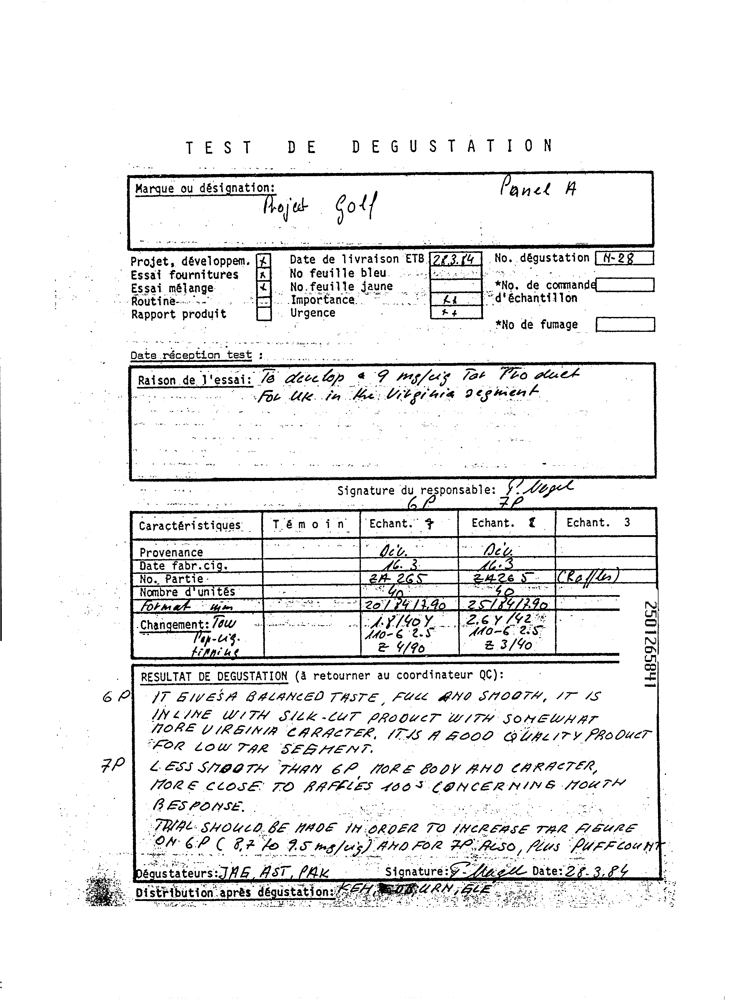 TEST DE DEGUSTATION
Marque ou désignation: Panel A
Project Golf
Projet, développem. x Date de livraison ETB 28.3.84 No. dégustation N-28
Essai fournitures x No feuille bleu
Essai mélange x No.feuille jaune *No. de commande
Routine Importance d'échantillon
Rapport produit Urgence ++
*No de fumage
Date réception test :
Raison de l'essai: To develop a 9 mg/cig Tar Product
For UK in the Virginia segment
Signature du responsable:
6P 7P
Caractéristiques Témoin Echant. Echant. Echant. 3
Provenance Dév. Dév.
Date fabr.cig. 16.3 16.3
No. Partie ZA 265 ZA265 (Raffles)
Nombre d'unités 40 40
Format mm 20/84/7.90 25/84/7.90
Changement: Tow 1.8/40Y 2.6Y/42
Pap-cig. 110-6 2.5 110-6 2.5
tipping Z 4/90 Z 3/40
2501265841
RESULTAT DE DEGUSTATION (à retourner au coordinateur QC):
6P IT GIVES A BALANCED TASTE, FULL AND SMOOTH, IT IS
IN LINE WITH SILK-CUT PRODUCT WITH SOMEWHAT
MORE VIRGINIA CARACTER, IT IS A GOOD QUALITY PRODUCT
FOR LOW TAR SEGMENT.
7P LESS SMOOTH THAN 6P MORE BODY AND CARACTER,
MORE CLOSE TO RAFFLES 100s CONCERNING MOUTH
RESPONSE.
TRIAL SHOULD BE MADE IN ORDER TO INCREASE TAR FIGURE
ON 6P (8,7 to 9.5 mg/cig) AND FOR 7P ALSO, PLUS PUFFCOUNT
Dégustateurs: JAE, AST, PAK Signature: Date: 28.3.84
Distribution après dégustation: KEH, URN, GLE